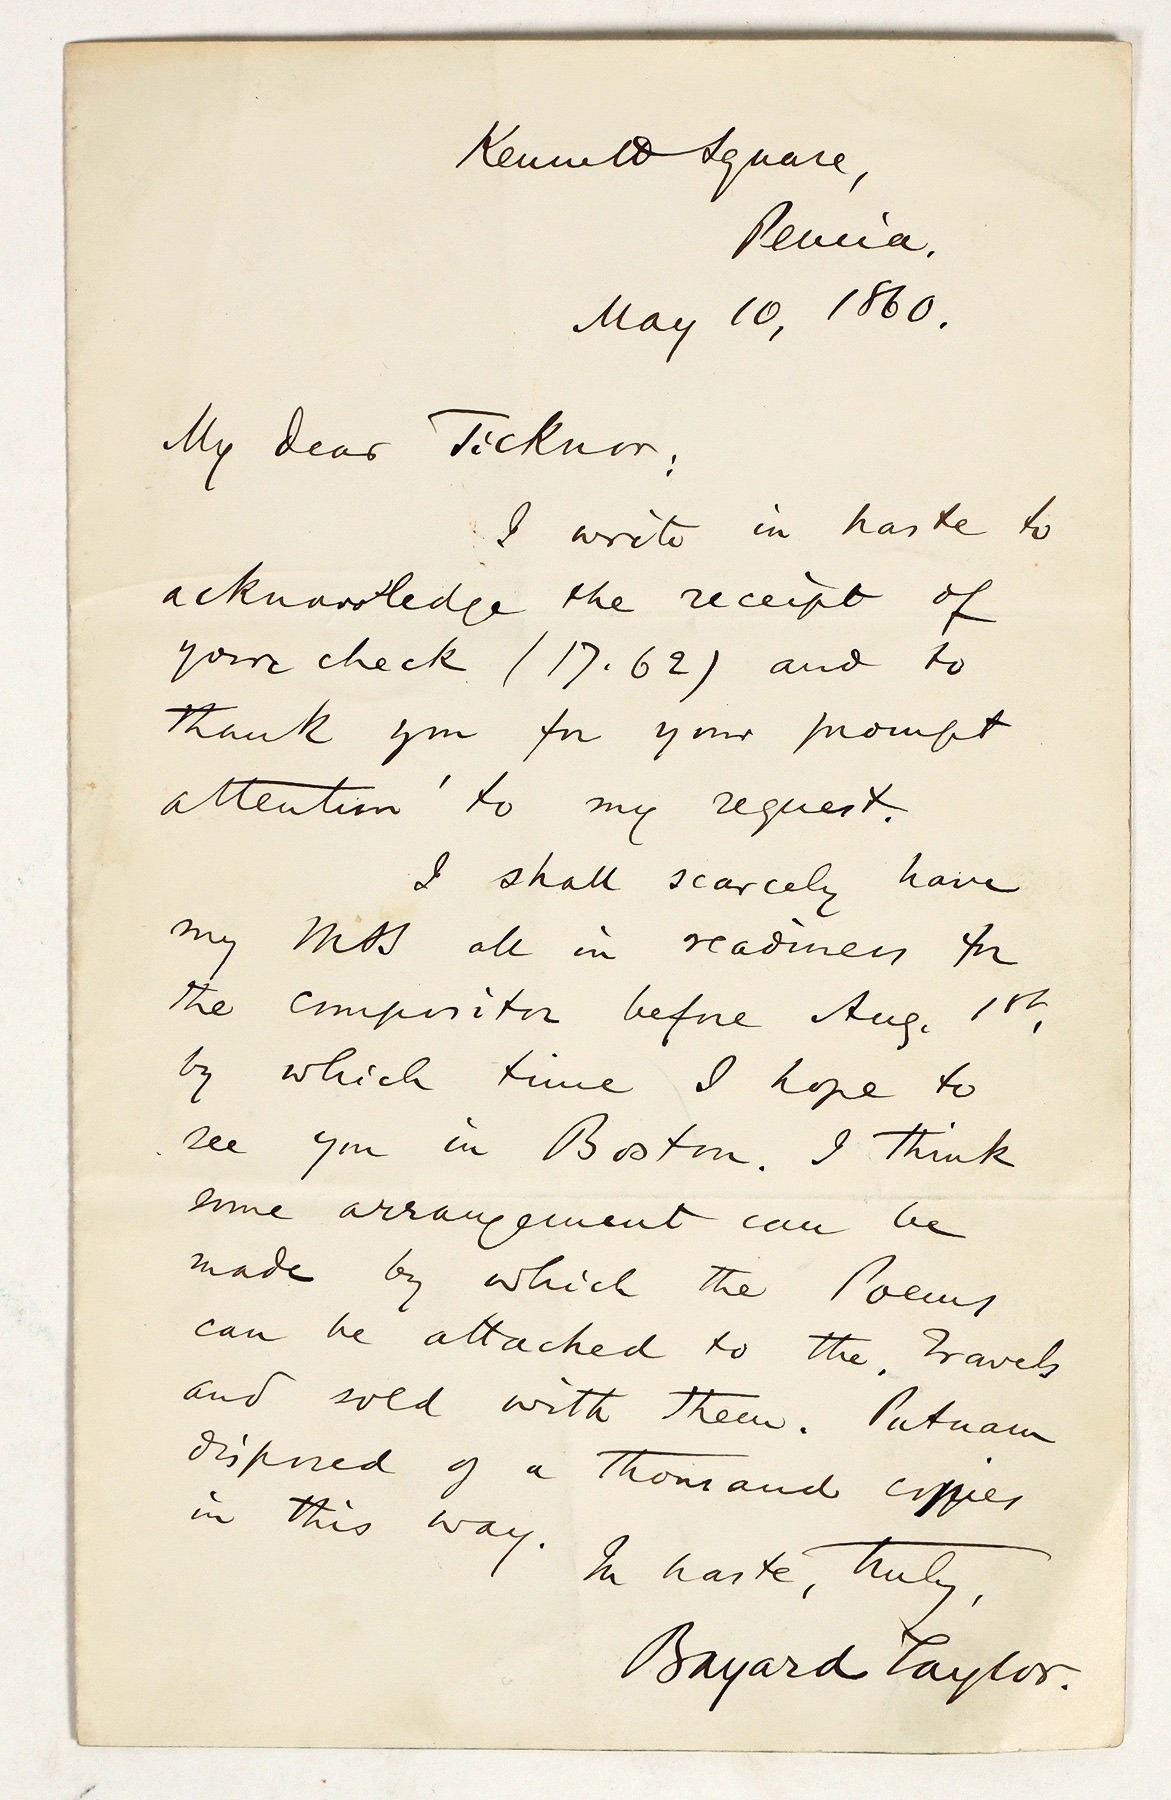 Kennett Square,
Penn'a.
May 10, 1860.
My dear Ticknor:
I write in haste to
acknowledge the receipt of
your check (17.62) and to
thank you for your prompt
attention to my request.
I shall scarcely have
my MSS all in readiness for
the compositor before Aug. 1st,
by which time I hope to
see you in Boston. I think
some arrangement can be
made by which the Poems
can be attached to the Travels
and sold with them. Putnam
disposed of a thousand copies
in this way.
In haste, truly,
Bayard Taylor.